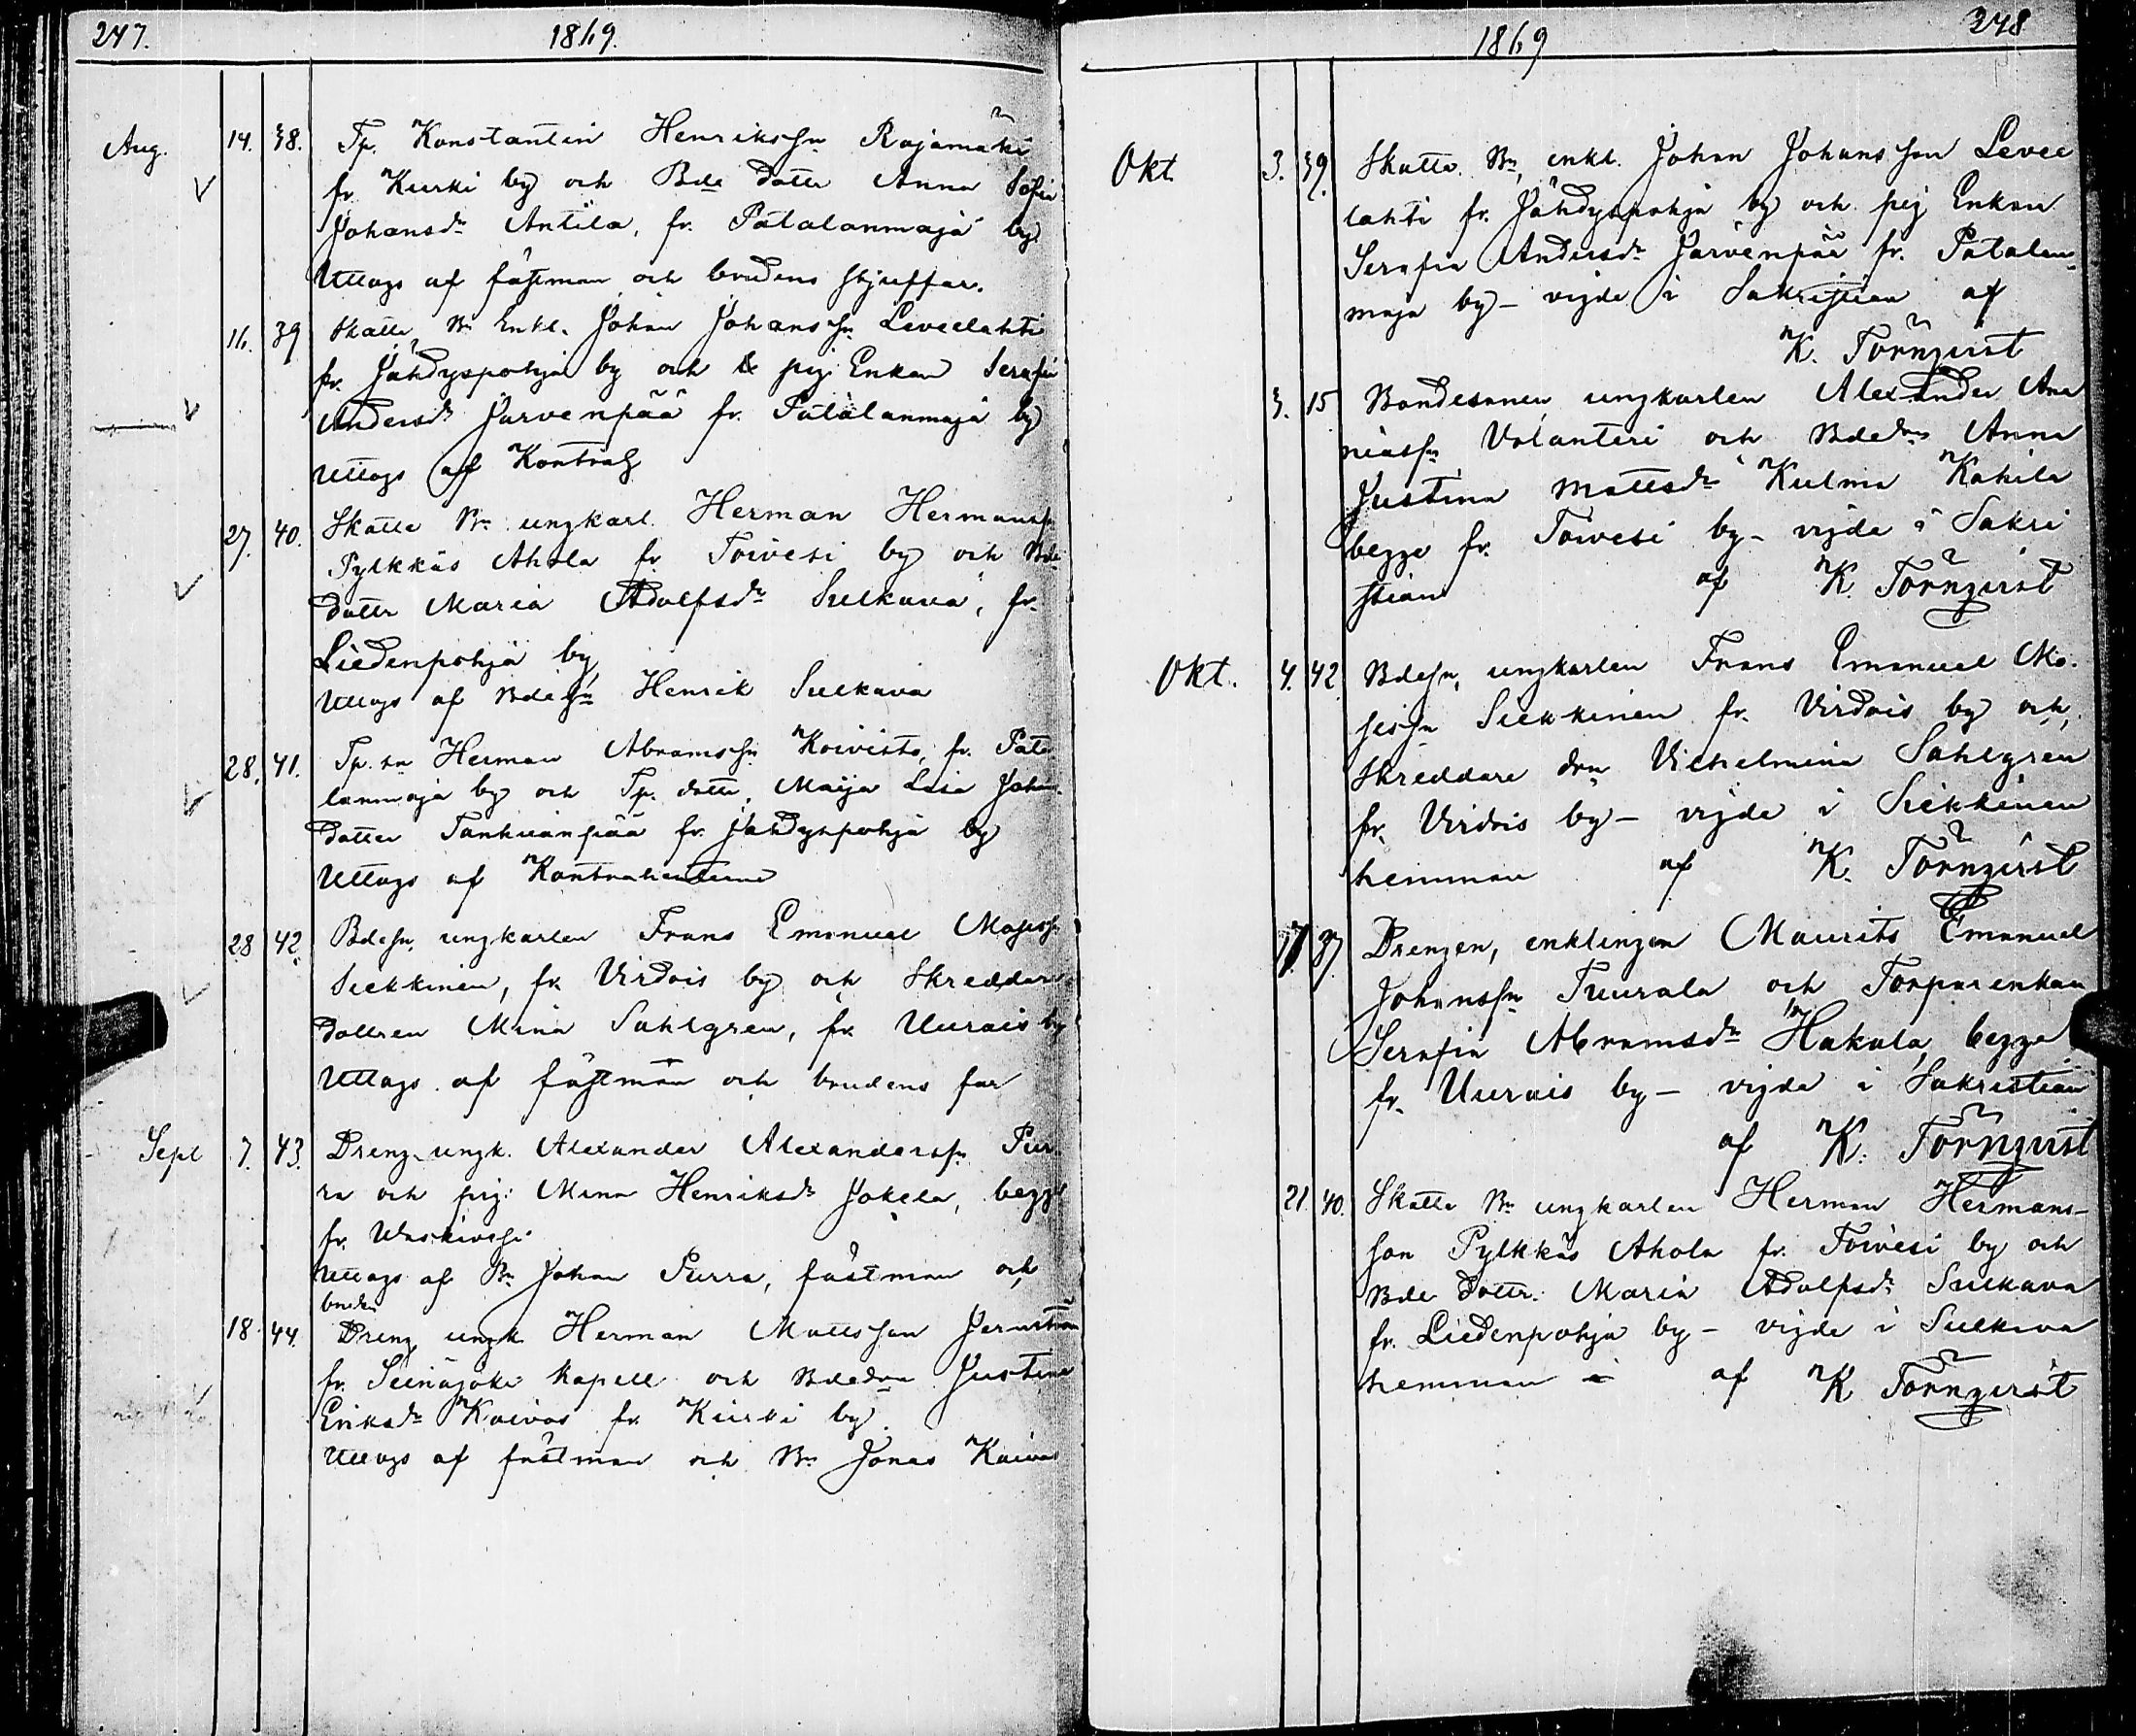 247.
1869.
Aug. 14. 38. Tp. Konstantin Henrikssn Rajamäki
fr. Kurki by och Bde dotter Anna Sofia
Johansdr Antila, fr. Patalanmaja by
Uttogs af fästman och brudens styffar.
16. 39 Skatte Bn Enkl. Johan Johanssn Leveelahti
fr. Jähdyspohja by och pig. Enkan Serafia
Andersdr Järvenpää fr. Patalanmaja by
Uttogs af Kontrah
27. 40. Skatte Bn ungkarl. Herman Hermanssn
Pylkkäs Ahola fr. Toivesi by och Bde
dottr Maria Adolfsdr Sulkava, fr.
Liedenpohja by
Uttogs af Bdesn Henrik Sulkava
28. 41. Tp. sn Herman Abramssn Koivisto, fr. Pata
lanmaja by och Tp. dottr. Maija Lisa Johans
dotter Tanhuanpää fr. Jähdyspohja by
Uttogs af Kontrahenterne
28 42. Bdesn, ungkarlen Frans Emanuel Mosissn
Siekkinen, fr. Virdois by och Skreddare
dottren Mina Sahlgren, fr. Uurais by
Uttogs af fästman och brudens far
Sept 7. 43. Dreng. ungk. Alexander Alexanderssn Pur
ra och pig: Mina Henriksdr Jokela, begge
fr. Waskivesi
Uttogs af Bn Johan Purra, fästman och
bruden
18. 44. Dreng ungk Herman Mattsson
fr. Seinäjoki Kapell och Bdedra Justina
Eriksdr Koivas fr. Kurki by.
Uttogs af fästman och Bn Jonas Koivas
1869
248
Okt. 3. 39. Skatte. Bn, enkl. Johan Johansson Levee
lahti fr. Jähdyspohja by och pig Enkan
Serafia Andersdr Järvenpää fr. Patalan
maja by – vigde i Sakristian af
K. Törnqvist
3. 15 Bondesonen ungkarlen Alexander Ana
niassn Volanteri och Bdedra Anna
Justina Mattsdr Kulma Kahila
begge fr. Toivesi by – vigde i Sakri
stian af K. Törnqvist
Okt. 4. 42 Bdesn, ungkarlen Frans Emanuel Mo-
sissn Siekkinen fr. Virdois by och
Skreddare dra Vilhelmina Sahlgren
fr. Virdois by – vigde i Siekkinen
hemman af K. Törnqvist
17. 37. Drengen, enklingen Maurits Emanuel
Johanssn Tuurala och Torparenkan
Serafia Abramsdr Hakala, begge
fr. Uurais by – vigde i Sakristian
af K. Törnqvist
21. 40. Skatte Bn ungkarlen Herman Hermans-
son Pylkkäs Ahola fr. Toivesi by och
Bde dottr. Maria Adolfsdr Sulkava
fr. Liedenpohja by – vigde i Sulkava
hemman af K Törnqvist